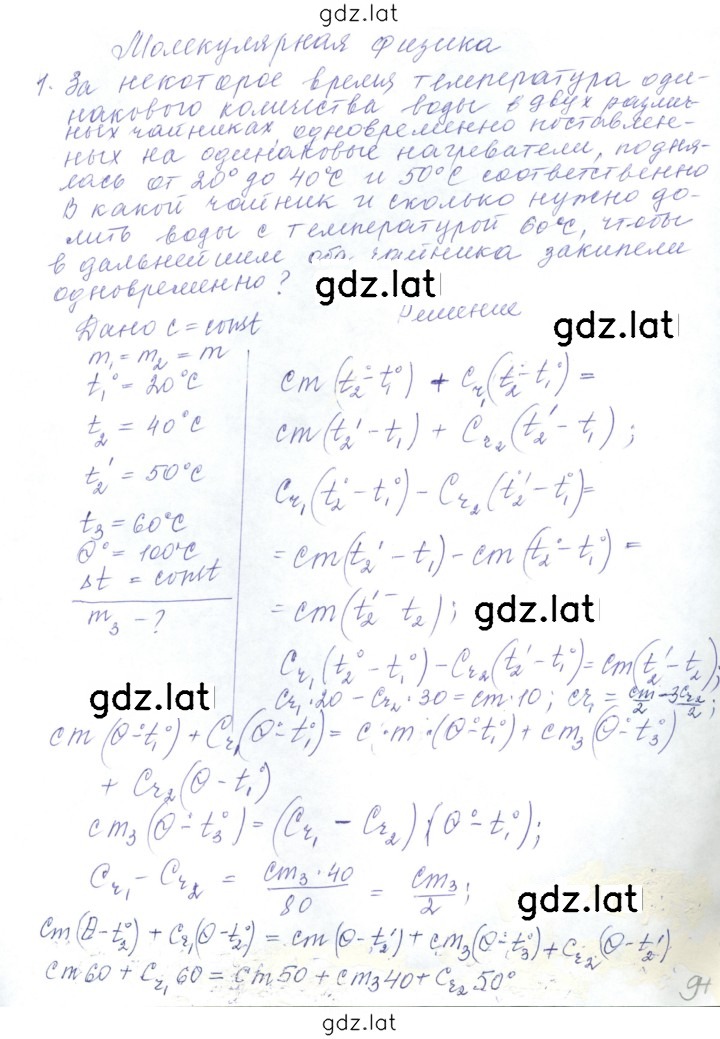 gdz.lat
Молекулярная физика
1. За некоторое время температура оди-
накового количества воды в двух различ-
ных чайниках, одновременно поставлен-
ных на одинаковые нагреватели, подня-
лась от 20° до 40°C и 50°C соответственно
В какой чайник и сколько нужно до-
лить воды с температурой 60°C, чтобы
в дальнейшем оба чайника закипели
одновременно?
gdz.lat
Решение
gdz.lat
Дано c = const
m₁ = m₂ = m
t₁° = 20°C
t₂ = 40°C
t₂' = 50°C
t₃ = 60°C
Θ° = 100°C
Δt = const
m₃ - ?
cm(t₂° - t₁°) + Cч₁(t₂° - t₁°) =
cm(t₂' - t₁) + Cч₂(t₂' - t₁);
Cч₁(t₂° - t₁°) - Cч₂(t₂' - t₁°) =
= cm(t₂' - t₁) - cm(t₂° - t₁°) =
= cm(t₂' - t₂);
gdz.lat
Cч₁(t₂° - t₁°) - Cч₂(t₂' - t₁°) = cm(t₂' - t₂);
gdz.lat
Cч₁·20 - Cч₂·30 = cm·10; Cч₁ = cm/2 - 3Cч₂/2;
cm(Θ° - t₁°) + Cч₁(Θ° - t₁°) = c·m·(Θ° - t₁°) + cm₃(Θ° - t₃°)
+ Cч₂(Θ - t₁°)
cm₃(Θ° - t₃°) = (Cч₁ - Cч₂)·(Θ° - t₁°);
Cч₁ - Cч₂ = cm₃·40/80 = cm₃/2;
gdz.lat
cm(Θ - t₂°) + Cч₁(Θ - t₂°) = cm(Θ - t₂') + cm₃(Θ° - t₃°) + Cч₂(Θ - t₂')
cm60 + Cч₁60 = cm50 + cm₃40 + Cч₂50°
gdz.lat